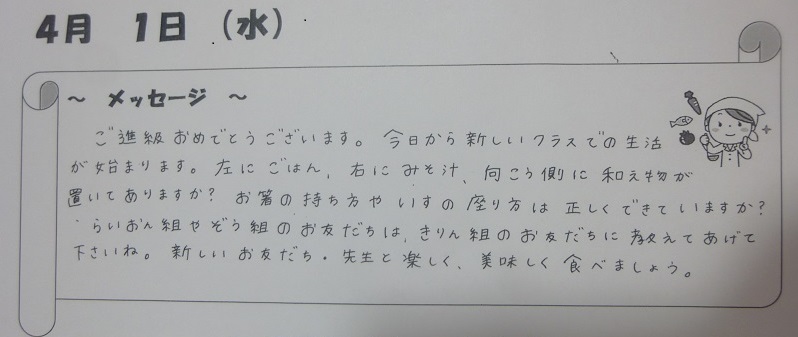 4月 1日 (水)
～ メッセージ ～
ご進級おめでとうございます。今日から新しいクラスでの生活
が始まります。左にごはん、右にみそ汁、向こう側に和え物が
置いてありますか？ お箸の持ち方やいすの座り方は正しくできていますか？
らいおん組やぞう組のお友だちは、きりん組のお友だちに教えてあげて
下さいね。新しいお友だち・先生と楽しく、美味しく食べましょう。